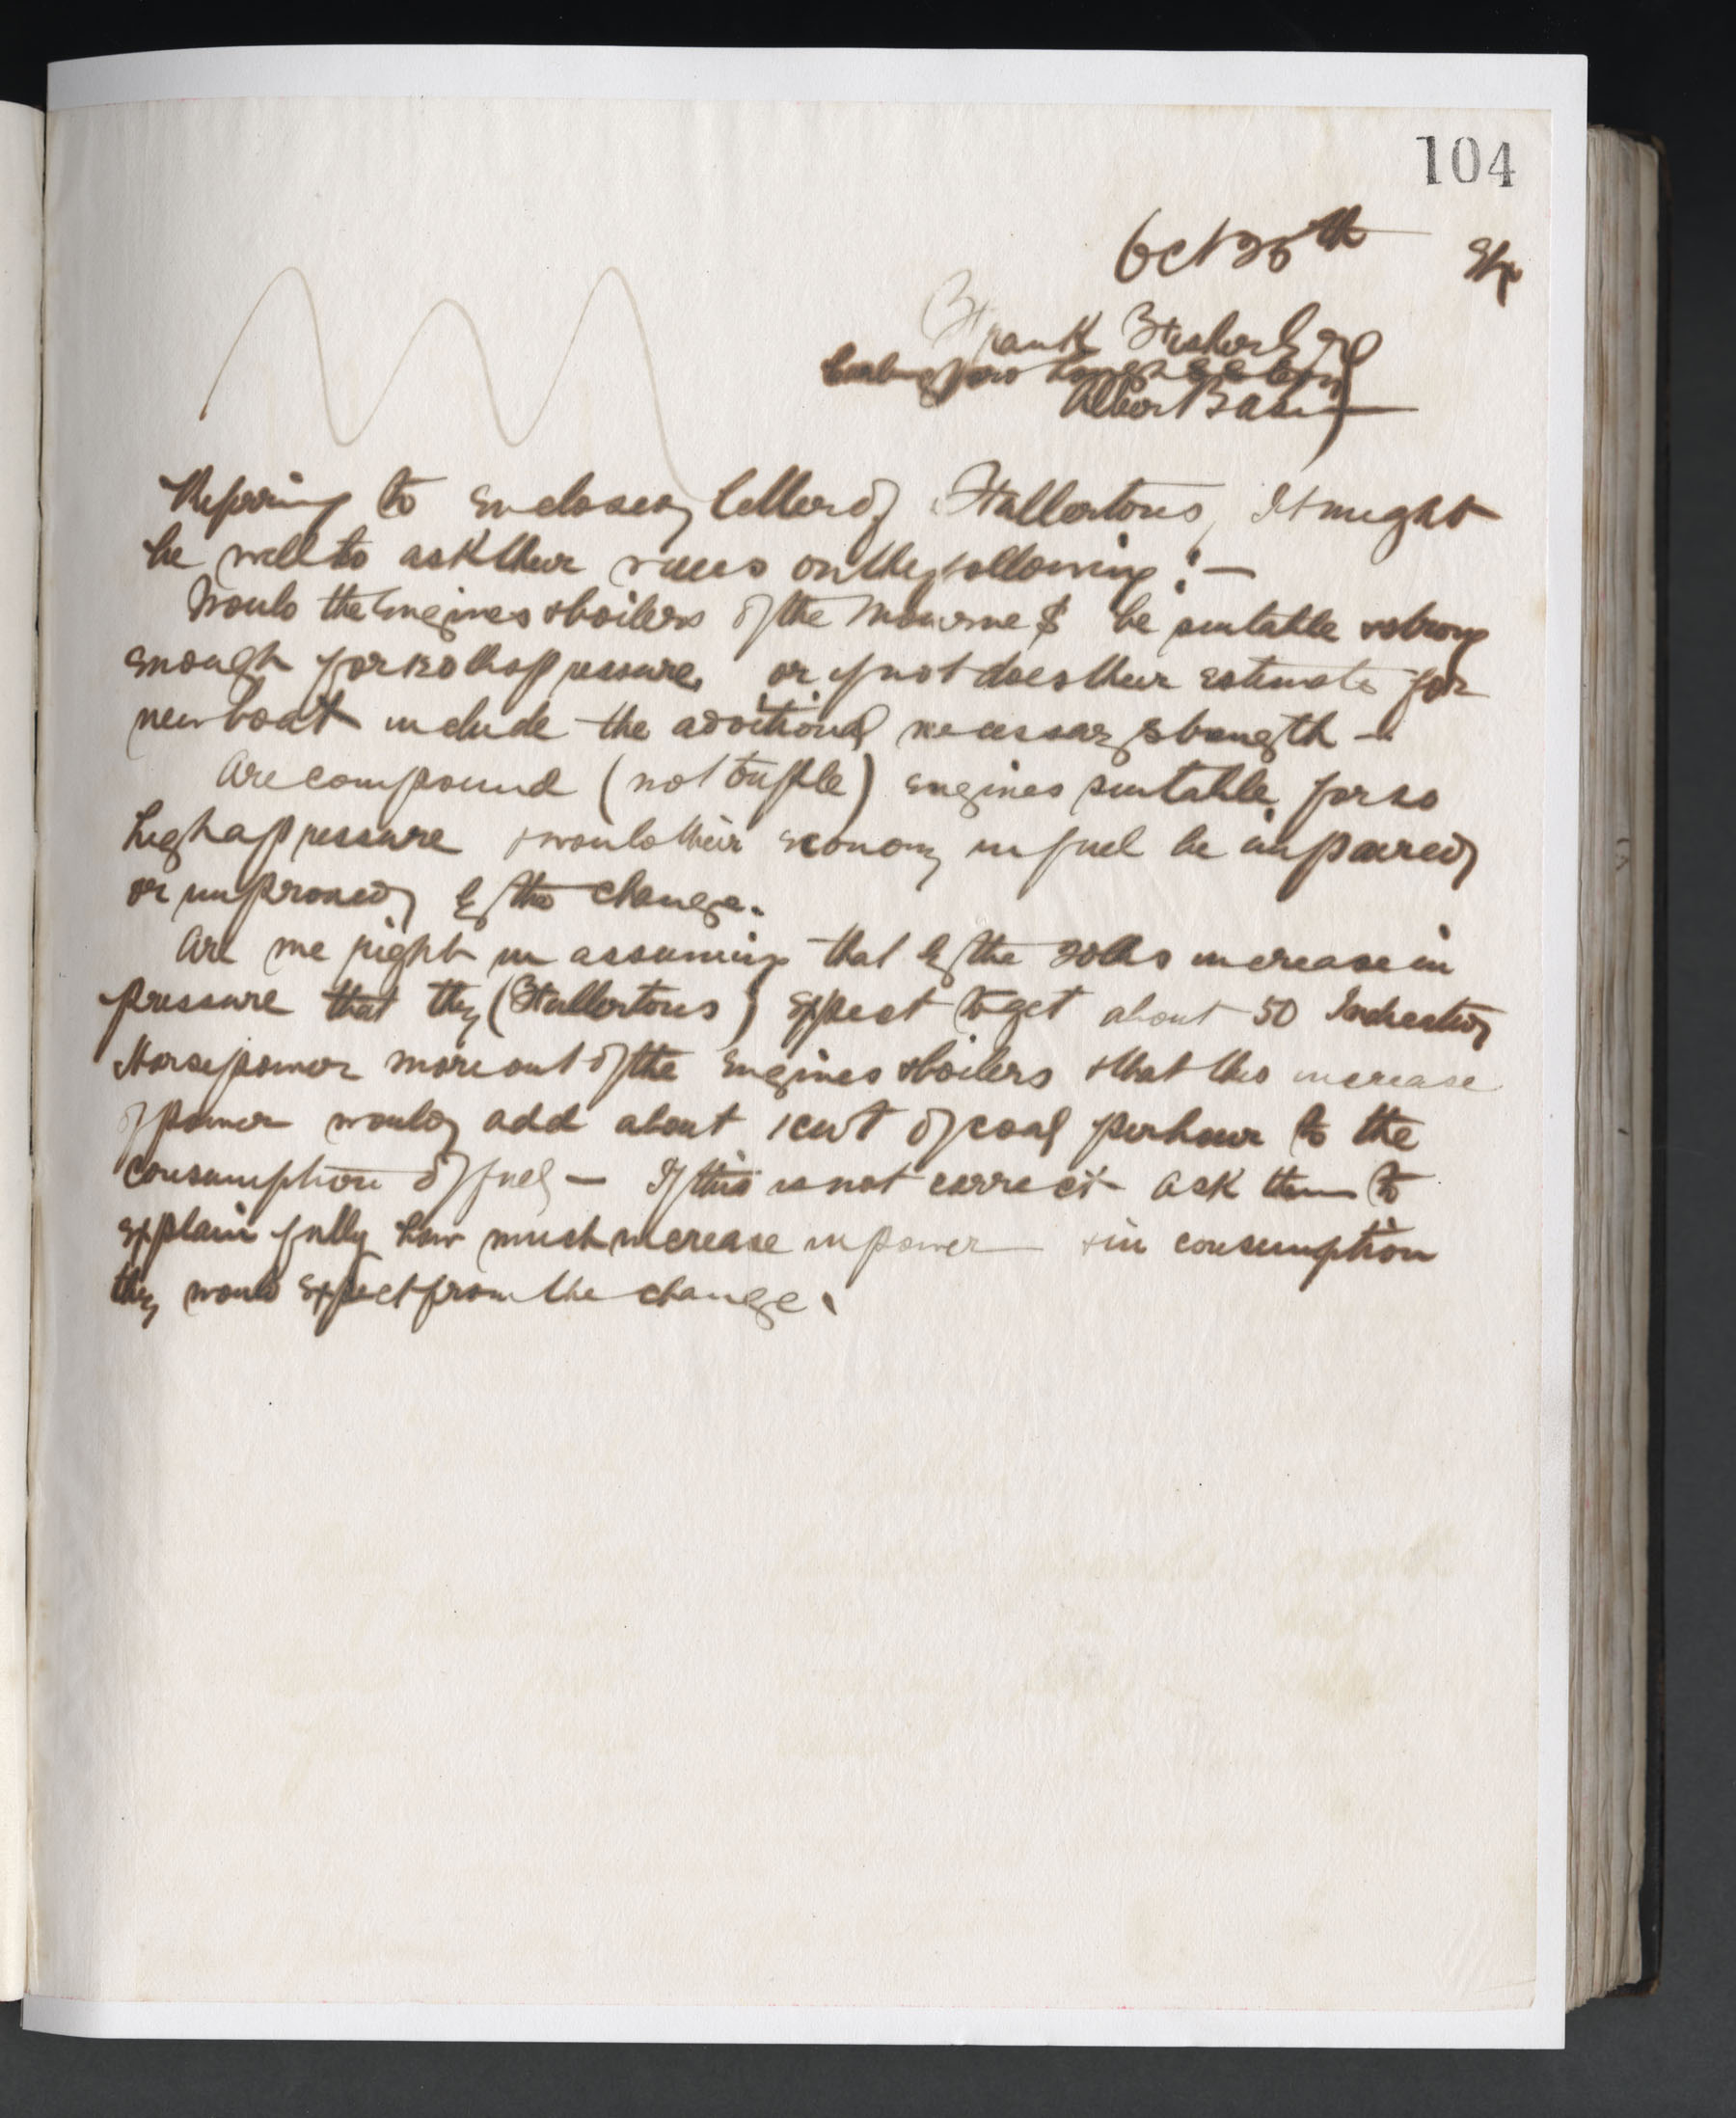 104
Oct 25th
Frank Fisher Esq
Albert Basin
Refering to enclosed letter of Fullertons, It might
be well to ask their views on the following :—
Would the Engines & boilers of the Mourne $ be suitable & strong
enough for 130 lbs pressure, or if not does their estimate for
new boat include the additional necessary strength —
Are compound (not triple) engines suitable for so
high a pressure & would their economy in fuel be impaired
or improved by the change.
Are we right in assuming that by the 30 lbs increase in
pressure that they (Fullertons) expect to get about 50 Indicated
Horsepower more out of the Engines & boilers & that this increase
of power would add about 1 cwt of coal per hour to the
consumption of fuel — If this is not correct ask them to
explain fully how much increase in power & in consumption
they would expect from the change.